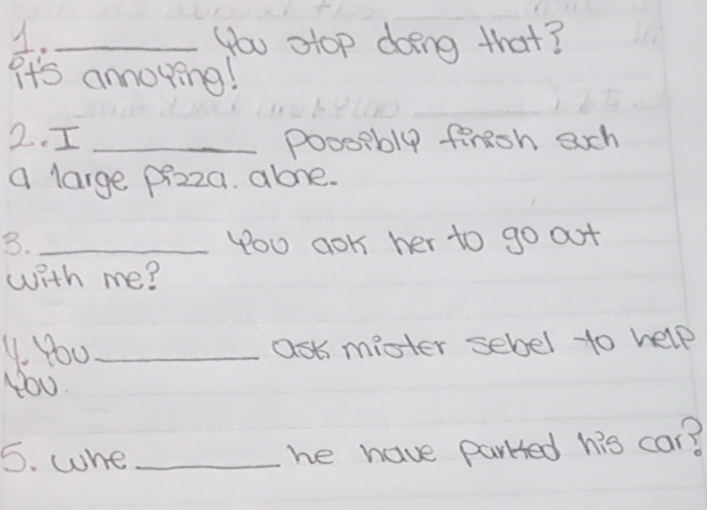 1. __________ You stop doing that?
it's annoying!
2. I __________ possibly finish such
a large pizza. alone.
3. __________ You ask her to go out
with me?
4. You __________ ask mister sebel to help
You.
5. Whe __________ he have parked his car?